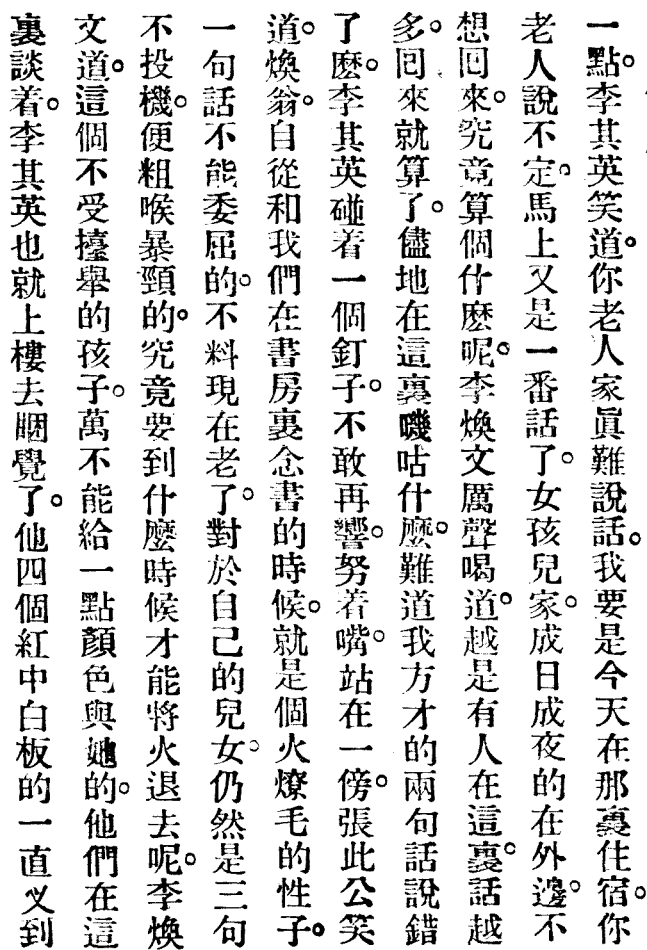 一點。李其英笑道。你老人家眞難說話。我要是今天在那裏住宿。你
老人說不定。馬上又是一番話了。女孩兒家。成日成夜的在外邊。不
想回來。究竟算個什麽呢。李煥文厲聲喝道。越是有人在這裏。話越
多。回來就算了。儘地在這裏嘰咕什麽。難道我方才的兩句話說錯
了麽。李其英碰着一個釘子。不敢再響。努着嘴。站在一傍。張此公笑
道。煥翁。自從和我們在書房裏念書的時候。就是個火燎毛的性子。
一句話不能委屈的。不料現在老了。對於自己的兒女。仍然是三句
不投機。便粗喉暴頸的。究竟要到什麽時候才能將火退去呢。李煥
文道。這個不受擡舉的孩子。萬不能給一點顏色與她的。他們在這
裏談着。李其英也就上樓去睏覺了。他四個紅中白板的一直义到